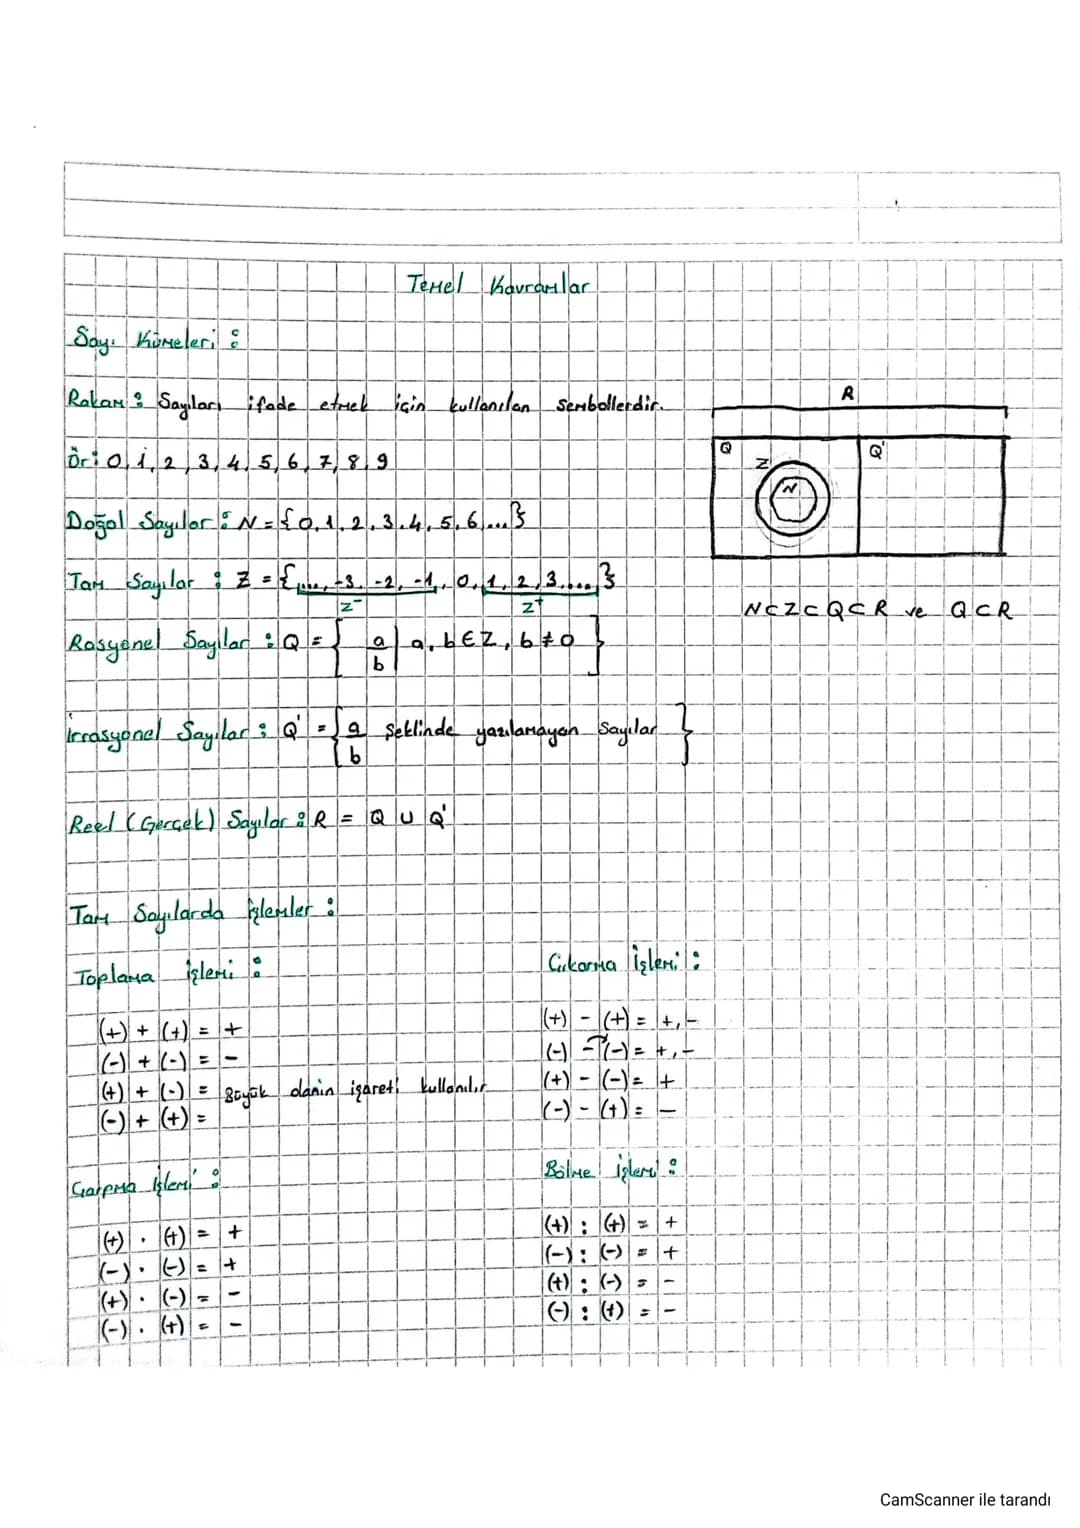 Temel Kavramlar
Sayı Kümeleri :
Rakam : Sayıları ifade etmek için kullanılan sembollerdir.
Ör: 0, 1, 2, 3, 4, 5, 6, 7, 8, 9
Doğal Sayılar : N = {0, 1, 2, 3, 4, 5, 6, ...}
Tam Sayılar : Z = {..., -3, -2, -1, 0, 1, 2, 3, ...}
Z⁻ Z⁺
Rasyonel Sayılar : Q = { a/b | a, b ∈ Z, b ≠ 0 }
İrrasyonel Sayılar : Q' = { a/b şeklinde yazılamayan sayılar }
Reel (Gerçek) Sayılar : R = Q ∪ Q'
R
Q Z N Q'
N ⊂ Z ⊂ Q ⊂ R ve Q ⊂ R
Tam Sayılarda İşlemler :
Toplama işlemi :
(+) + (+) = +
(-) + (-) = -
(+) + (-) = Büyük olanın işareti kullanılır
(-) + (+) =
Çıkarma İşlemi :
(+) - (+) = +, -
(-) - (-) = +, -
(+) - (-) = +
(-) - (+) = -
Çarpma İşlemi :
(+) . (+) = +
(-) . (-) = +
(+) . (-) = -
(-) . (+) = -
Bölme işlemi :
(+) : (+) = +
(-) : (-) = +
(+) : (-) = -
(-) : (+) = -
CamScanner ile tarandı